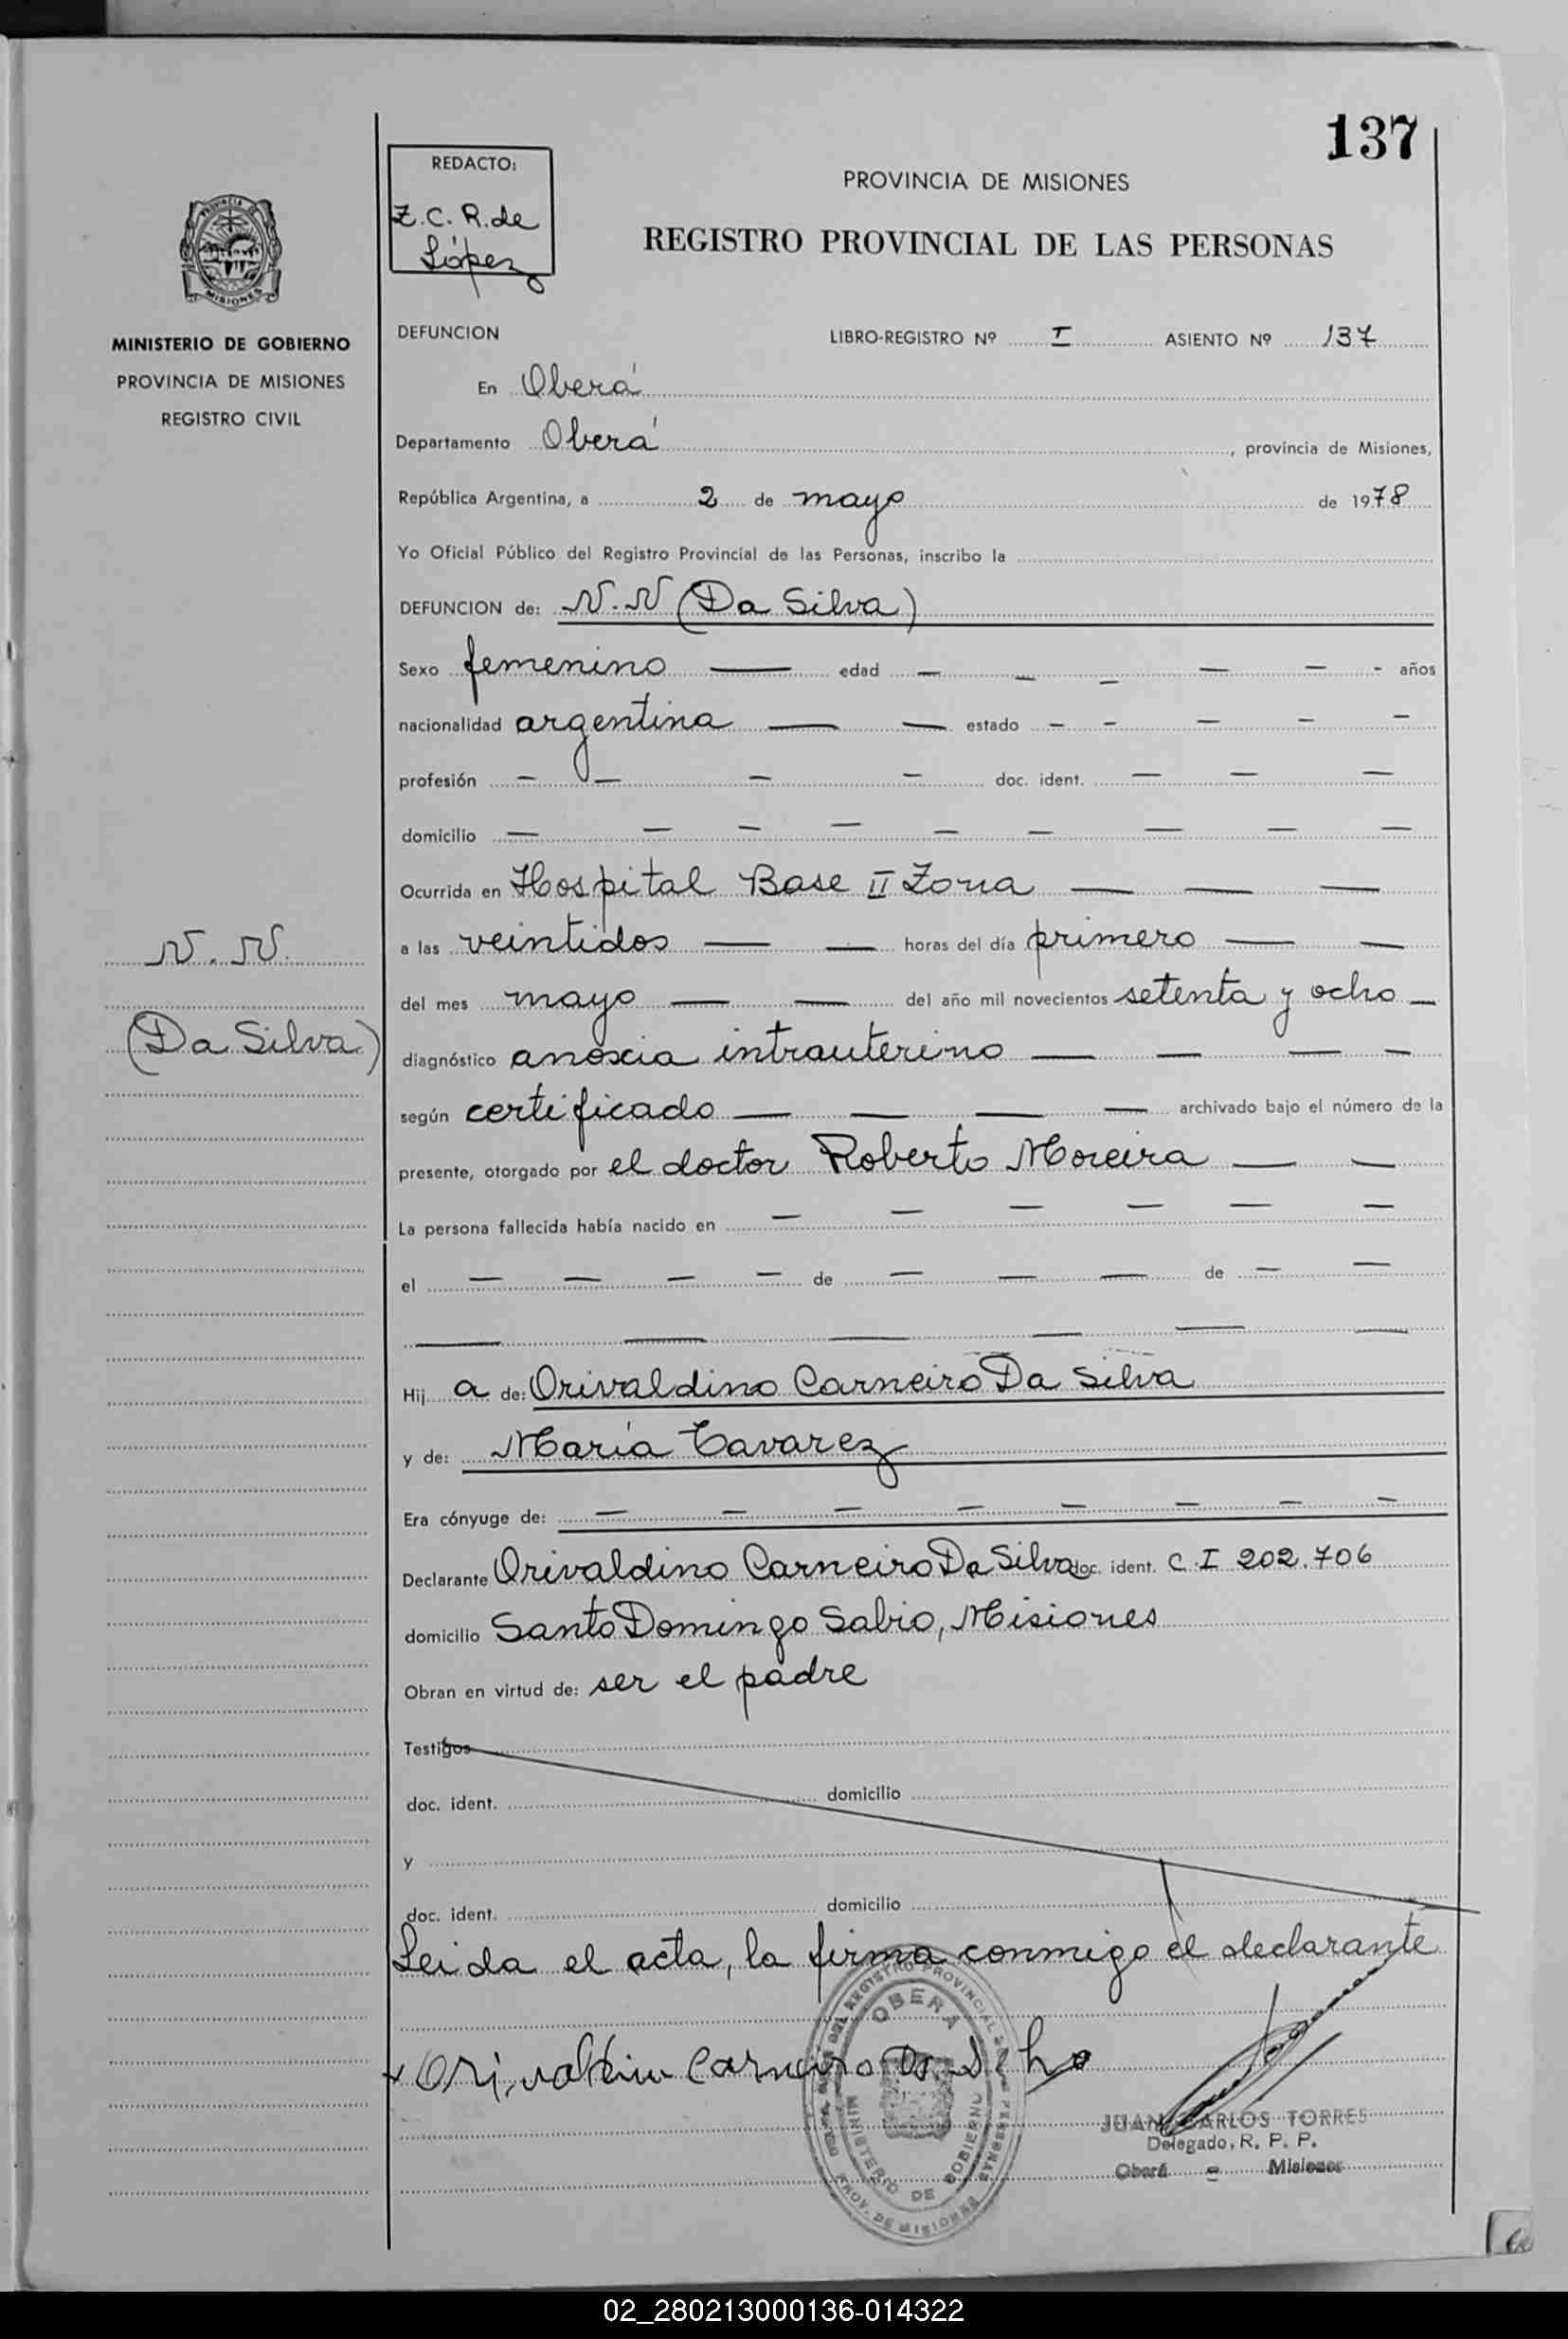 137
REDACTO:
Z. C. R. de
López
PROVINCIA DE MISIONES
REGISTRO PROVINCIAL DE LAS PERSONAS
MISIONES
MINISTERIO DE GOBIERNO
PROVINCIA DE MISIONES
REGISTRO CIVIL
DEFUNCION LIBRO-REGISTRO Nº I ASIENTO Nº 137
En Oberá
Departamento Oberá, provincia de Misiones,
República Argentina, a 2 de mayo de 1978
Yo Oficial Público del Registro Provincial de las Personas, inscribo la
DEFUNCION de: N.N (Da Silva)
Sexo femenino — edad — — — — — - años
nacionalidad argentina — — estado — — — — —
profesión — — — — doc. ident. — — —
domicilio — — — — — — — — —
Ocurrida en Hospital Base II Zona — — —
N. N.
(Da Silva)
a las veintidos — — horas del día primero — —
del mes mayo — — del año mil novecientos setenta y ocho —
diagnóstico anoxia intrauterino — — — —
según certificado — — — — archivado bajo el número de la
presente, otorgado por el doctor Roberto Moreira — —
La persona fallecida había nacido en — — — — — —
el — — — — de — — — de — —
— — — — — —
Hij a de: Orivaldino Carneiro Da Silva
y de: María Tavarez
Era cónyuge de: — — — — — — — —
Declarante Orivaldino Carneiro Da Silva doc. ident. C.I 202.706
domicilio Santo Domingo Sabio, Misiones
Obran en virtud de: ser el padre
Testigos
doc. ident. domicilio
y
doc. ident. domicilio
Leida el acta, la firma conmigo el declarante
OBERÁ
MINISTERIO DE GOBIERNO
PROV. DE MISIONES
JUAN CARLOS TORRES
Delegado, R. P. P.
Oberá - Misiones
02_280213000136-014322